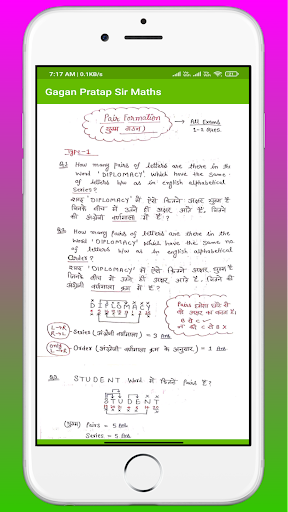 7:17 AM | 0.1KB/s
Gagan Pratap Sir Maths
Pair Formation
(युग्म गठन)
All Exams
1-2 Ques.
Type-1
Q.1 How many pairs of letters are there in the
word 'DIPLOMACY' which have the same
of letters b/w as in english alphabetical
Series?
शब्द 'DIPLOMACY' में ऐसे कितने अक्षर युग्म हैं
जिनके बीच में उतने ही अक्षर आते हैं, जितने
की अंग्रेजी वर्णमाला में हैं?
Q2: How many pairs of letters are there in the
word 'DIPLOMACY' which have the same no
of letters b/w as in english alphabetical
Order?
शब्द 'DIPLOMACY' में ऐसे कितने अक्षर युग्म हैं
जिनके बीच में उतने ही अक्षर आते हैं, जितने
की अंग्रेजी वर्णमाला क्रम में हैं?
DIPLOMACY
Series (अंग्रेजी वर्णमाला) = 3 Ans
Order (अंग्रेजी वर्णमाला क्रम के अनुसार) = 1 Ans
Q.3 STUDENT Word में कितने pair हैं?
STUDENT
(युग्म) Pairs = 5 Ans
Series = 5 Ans